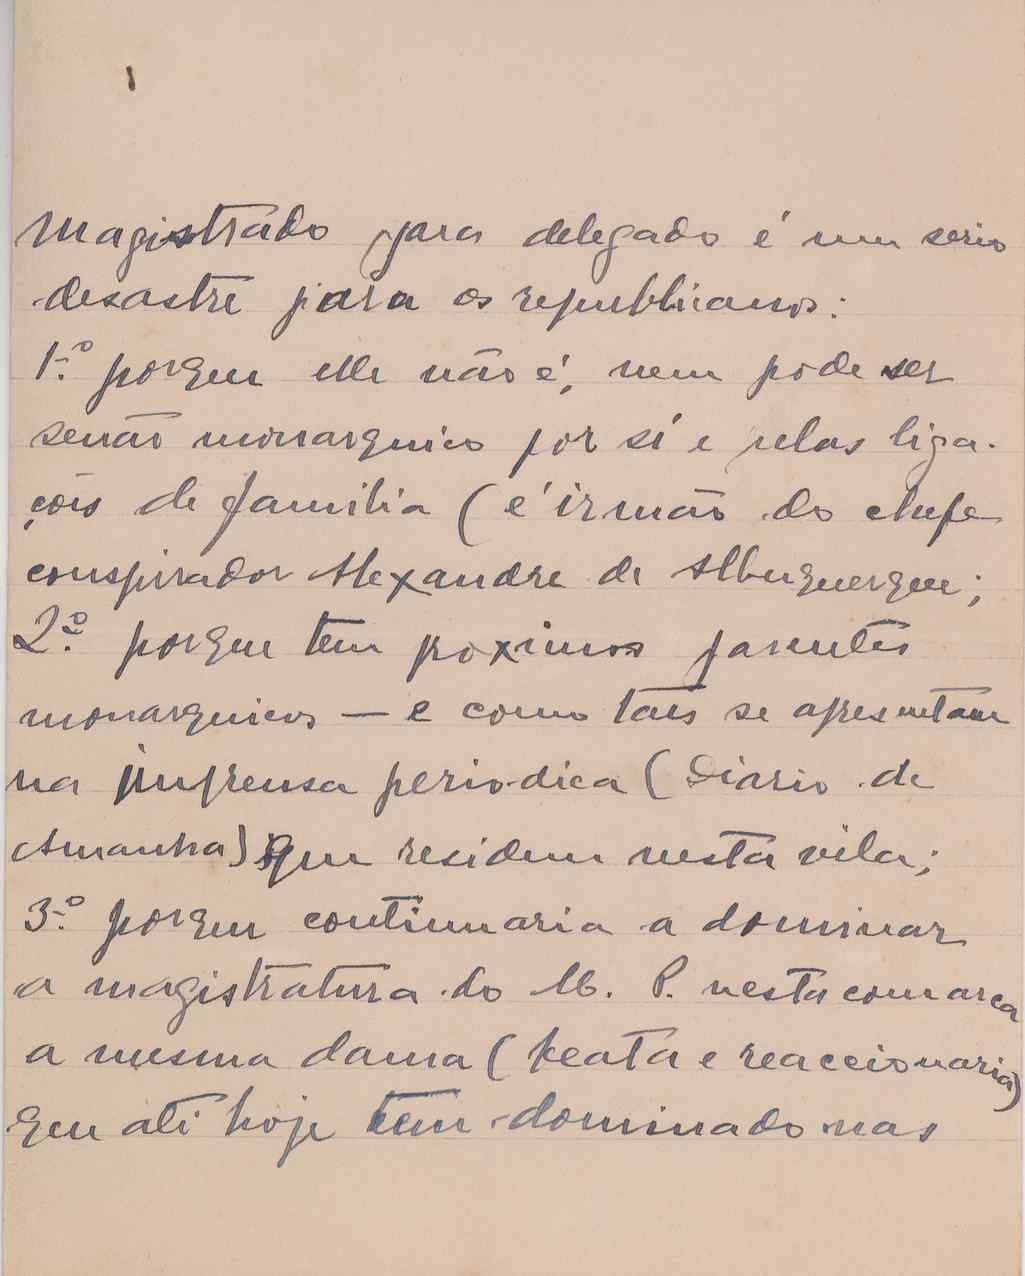 magistrado para delegado é um serio
desastre para os republicanos:
1.º porque elle não é, nem pode ser
senão monarquico por si e pelas liga-
ções de familia (é irmão do chefe
conspirador Alexandre de Albuquerque;
2.º porque tem proximos parentes
monarquicos — e como taes se apresentam
na imprensa periodica (Diario de
Amanha) que residem nesta vila;
3.º porque continuaria a dominar
a magistratura do M. P. nesta comarca
a mesma dama (beata e reaccionaria)
que até hoje tem dominado nas